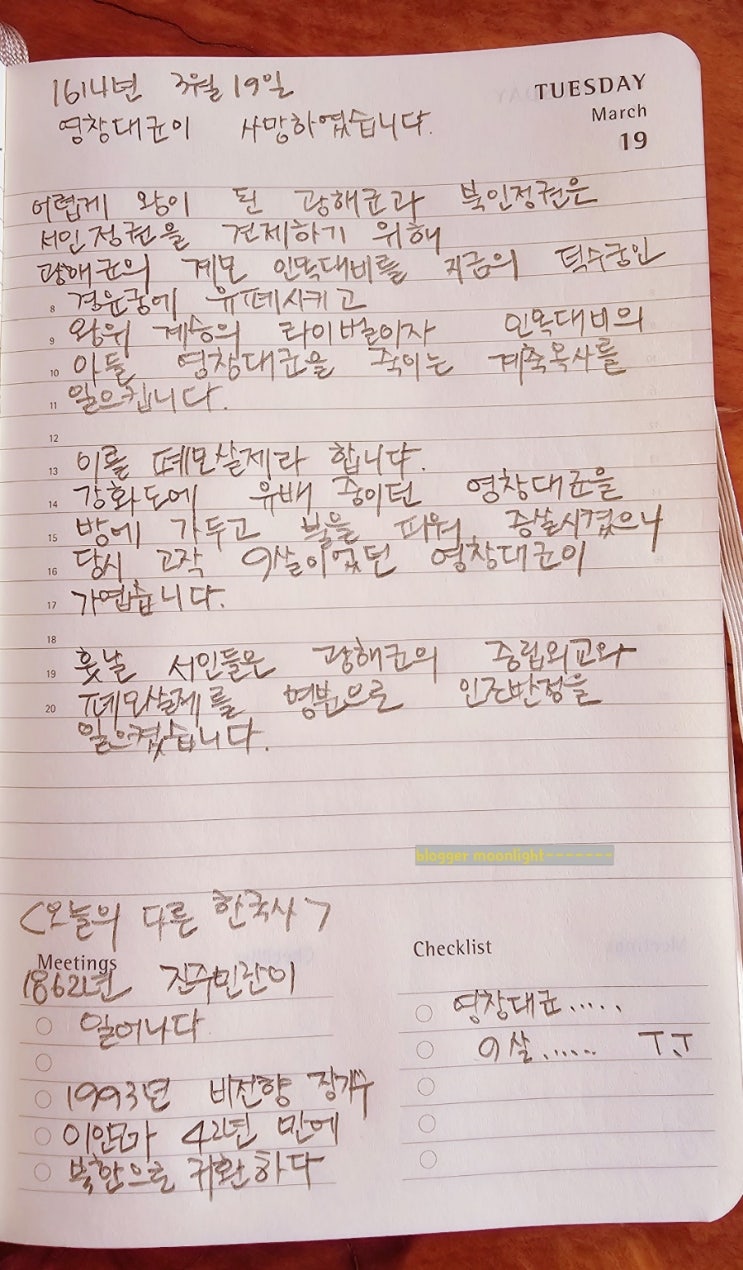 1614년 3월 19일
영창대군이 사망하였습니다.
TUESDAY
March
19
어렵게 왕이 된 광해군과 북인정권은
서인정권을 견제하기 위해
광해군의 계모 인목대비를 지금의 덕수궁인
8 경운궁에 유폐시키고
9 왕위 계승의 라이벌이자 인목대비의
10 아들 영창대군을 죽이는 계축옥사를
11 일으킵니다.
12
13 이를 폐모살제라 합니다.
14 강화도에 유배 중이던 영창대군을
15 방에 가두고 불을 피워 증살시켰으니
16 당시 고작 9살이었던 영창대군이
17 가엽습니다.
18
19 훗날 서인들은 광해군의 중립외교와
20 폐모살제를 명분으로 인조반정을
일으켰습니다.
blogger moonlight-------
<오늘의 다른 한국사>
Meetings
1862년 진주민란이
일어나다
1993년 비전향 장기수
이인모가 42년 만에
북한으로 귀환하다
Checklist
영창대군.....
9살...... T.T